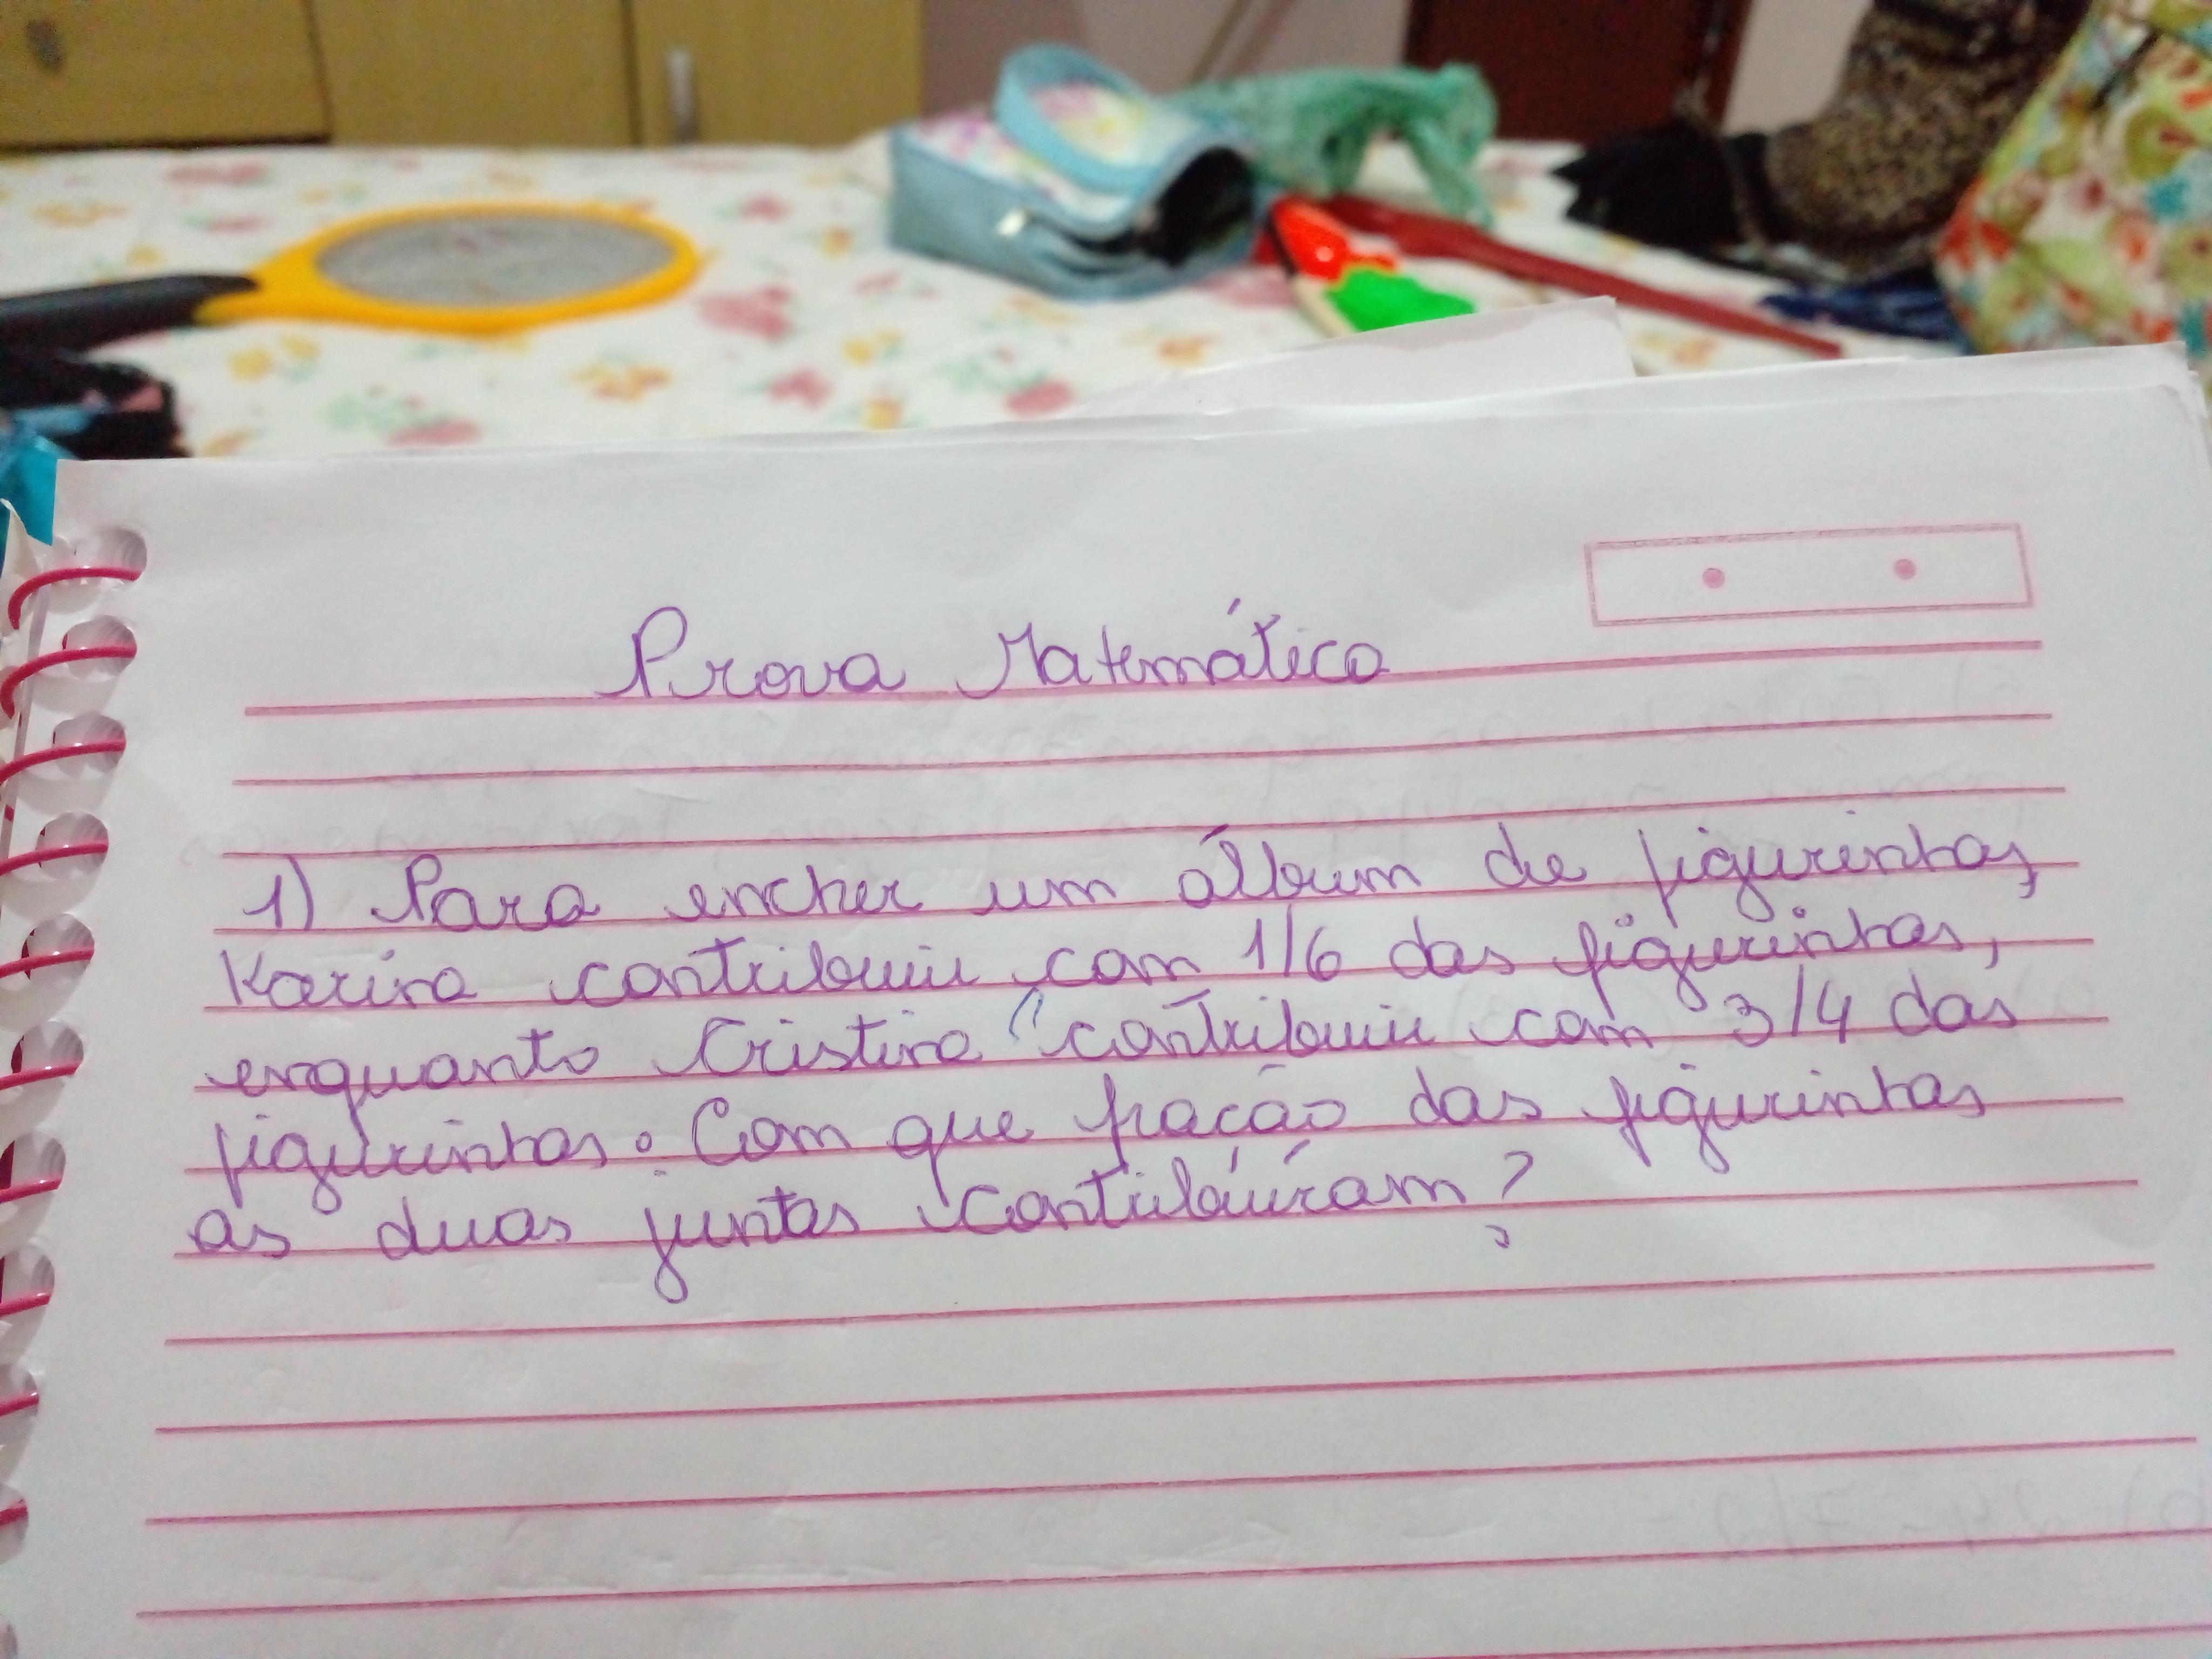 Prova Matemática
1) Para encher um álbum de figurinhas,
Karina contribuiu com 1/6 das figurinhas,
enquanto Cristina contribuiu com 3/4 das
figurinhas. Com que fração das figurinhas
as duas juntas contribuíram?